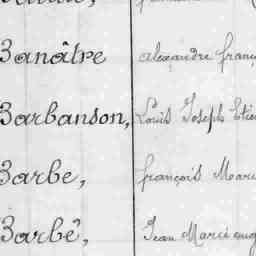 Banâtre alexandre franç
Barbanson, Louis Joseph Etie
Barbe, françois Marie
Barbé, Jean Marie aug